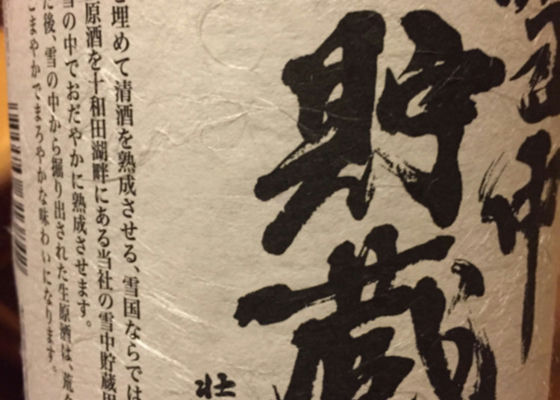 雪中
貯蔵
壮
埋めて清酒を熟成させる、雪国ならでは
原酒を十和田湖畔にある当社の雪中貯蔵
雪の中でおだやかに熟成させます。
た後、雪の中から掘り出された生原酒は、荒々
こまやかでまろやかな味わいになります。